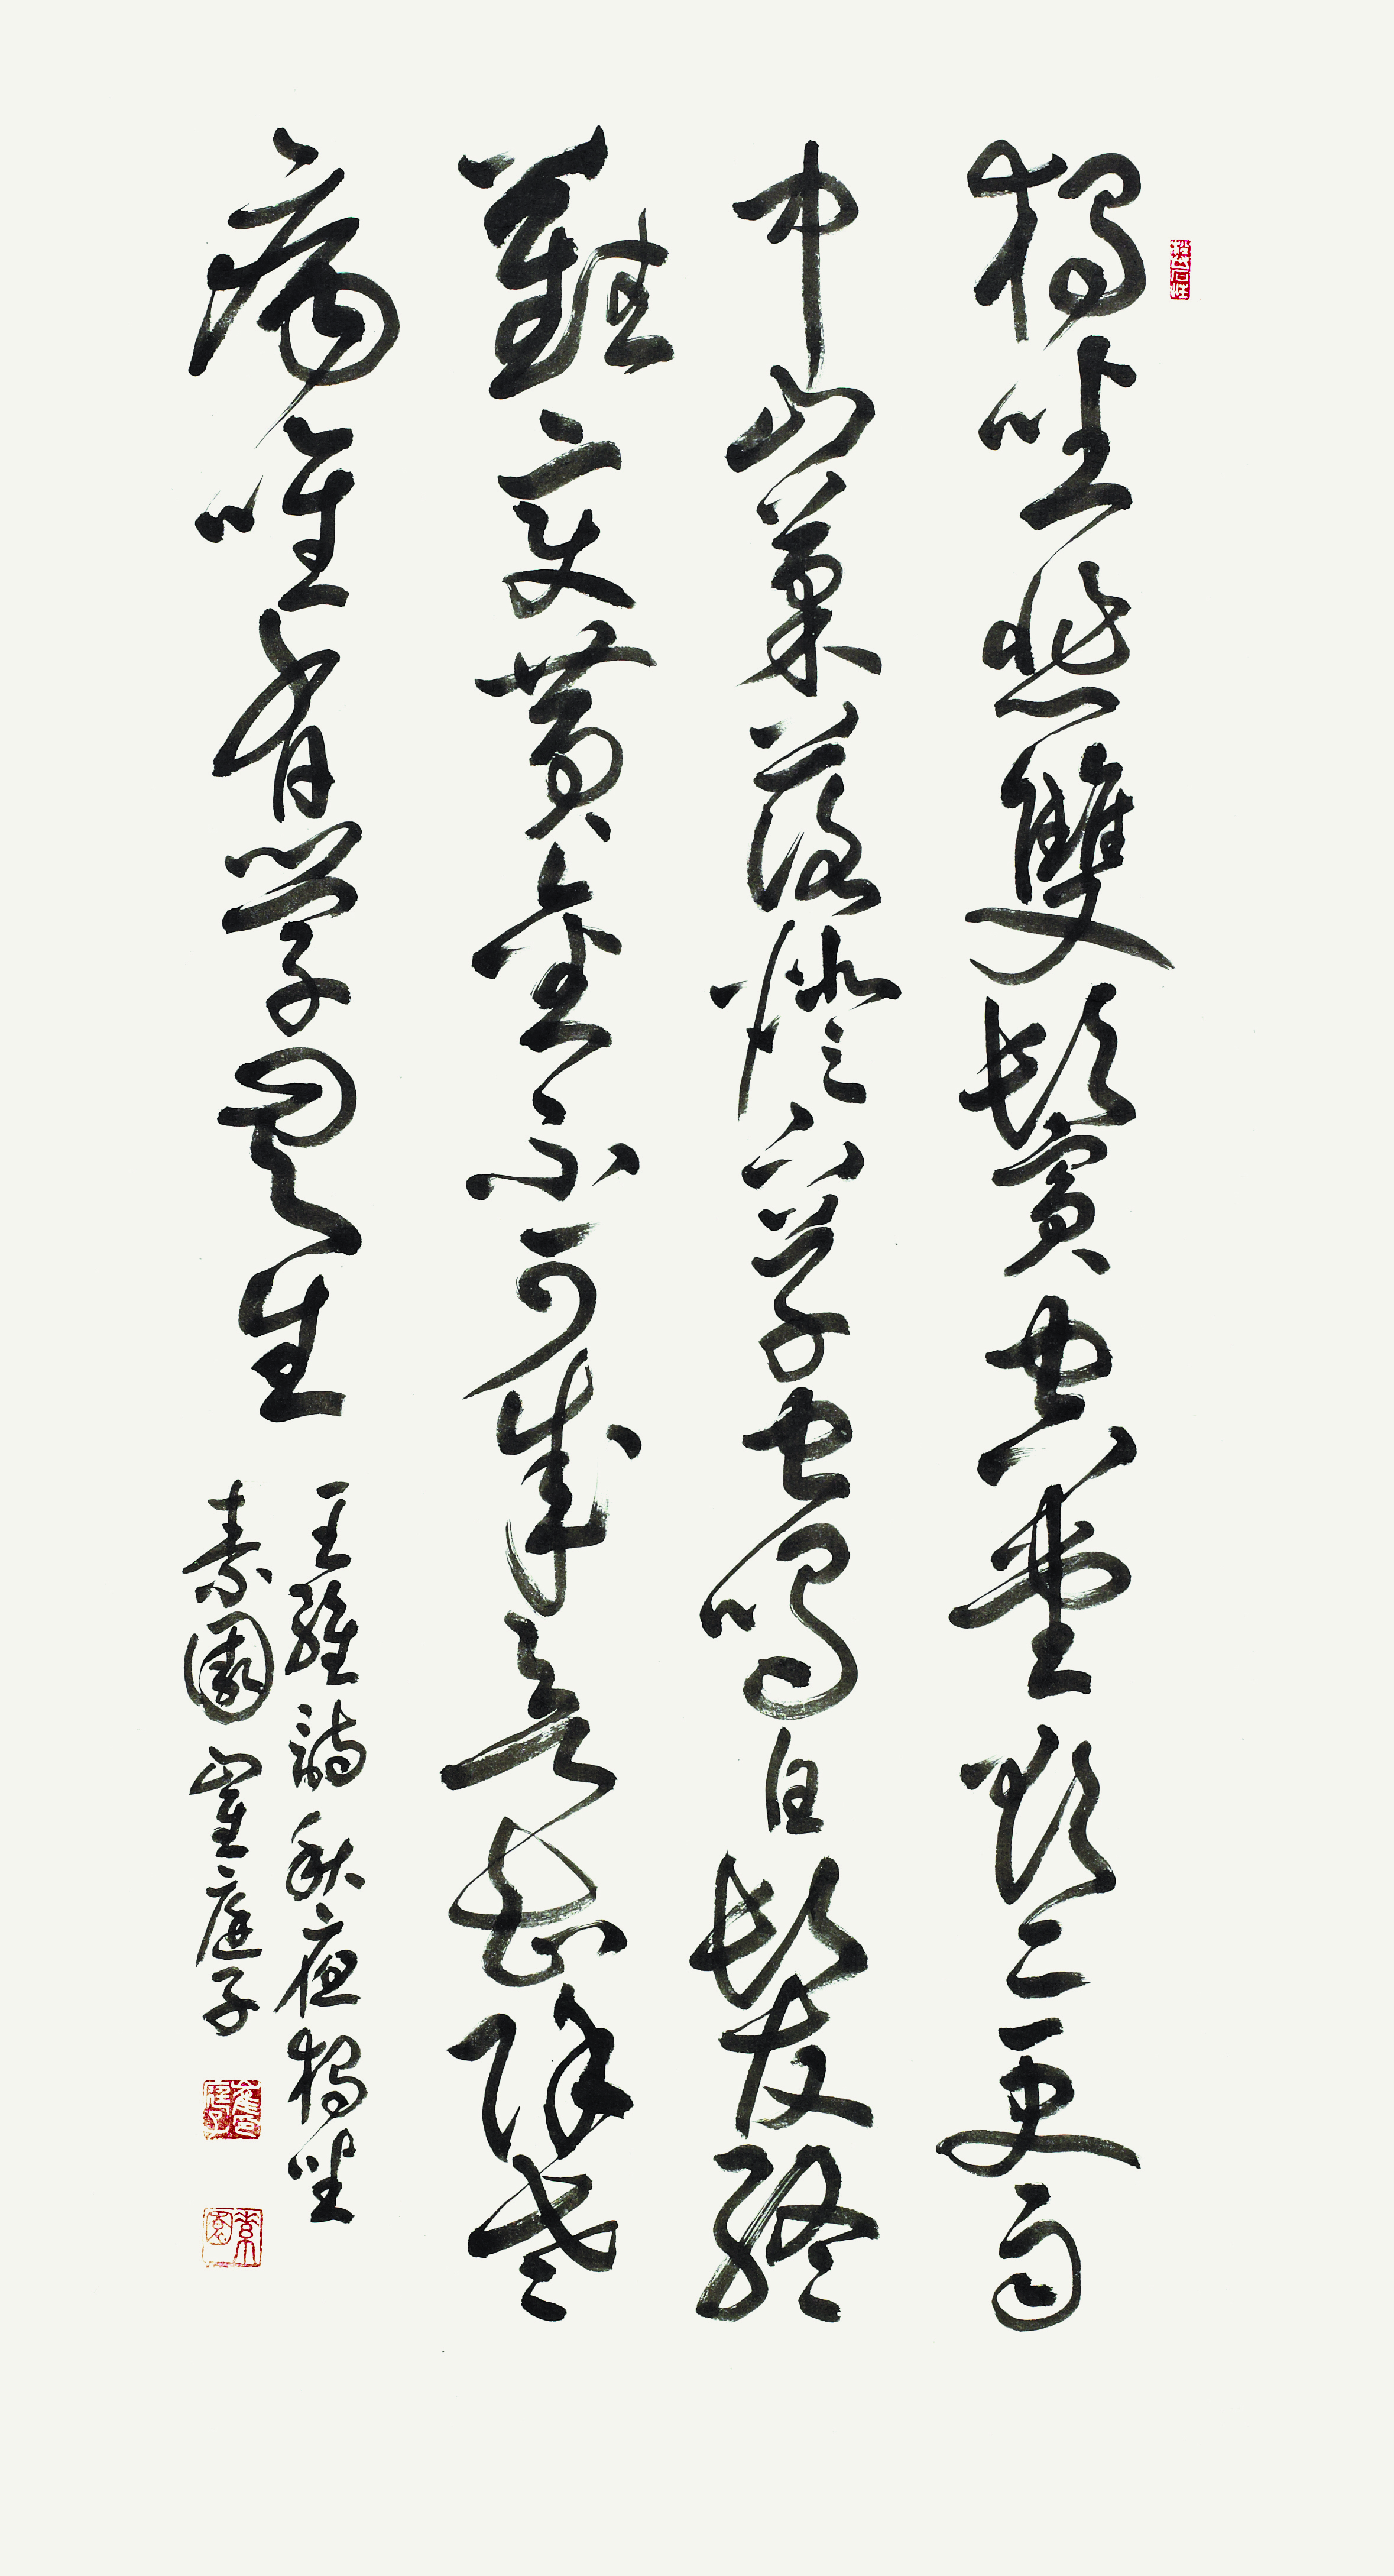 獨坐悲雙鬢空堂欲二更雨
中山菓落燈下草虫鳴白髮終
難變黃金不可成欲知除老
病唯有學無生
王維詩秋夜獨坐
素園 崔庭子
素園